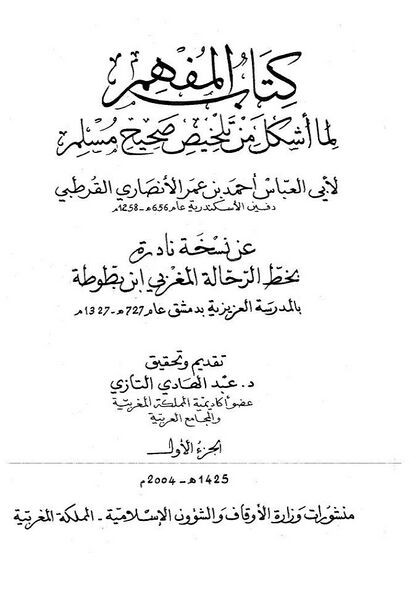 كتاب المفهم
لما أشكل من تلخيص صحيح مسلم
لأبي العباس أحمد بن عمر الأنصاري القرطبي
دفين الأسكندرية عام 656هـ - 1258م
عن نسخة نادرة
بخط الرحالة المغربي ابن بطوطة
بالمدرسة العزيزية بدمشق عام 727هـ - 1327م
تقديم وتحقيق
د. عبد الهادي التازي
عضو أكاديمية المملكة المغربية
والمجامع العربية
الجزء الأول
1425هـ - 2004م
منشورات وزارة الأوقاف والشؤون الإسلامية - المملكة المغربية